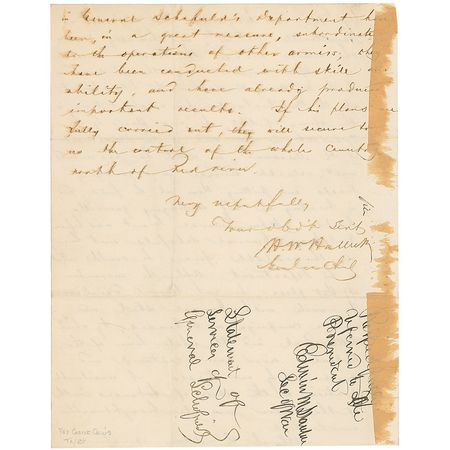 in General Schofield's Department have
been, in a great measure, subordinate
to the operations of other armies, they
have been conducted with skill
ability, and have already produc
important results. If his plans
fully carried out, they will secure to
us the control of the whole country
north of Red river.
Very respectfully
Your obdt Servt
H W Halleck
Genl in Chf
Statement of
services of
General Schofield
referred to the
President
Edwin M Stanton
Sec of War